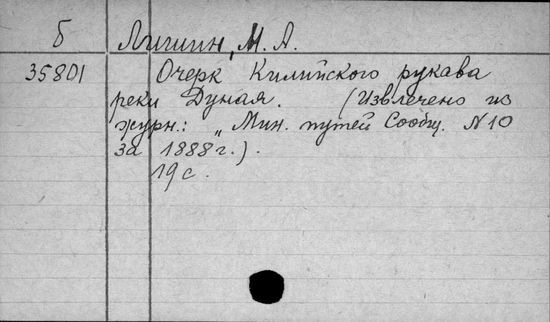 Б Лишин, М. А.
35801 Очерк Килийского рукава
реки Дуная. (Извлечено из
журн.: „Мин. путей Сообщ. N10
за 1888г.).
19с.